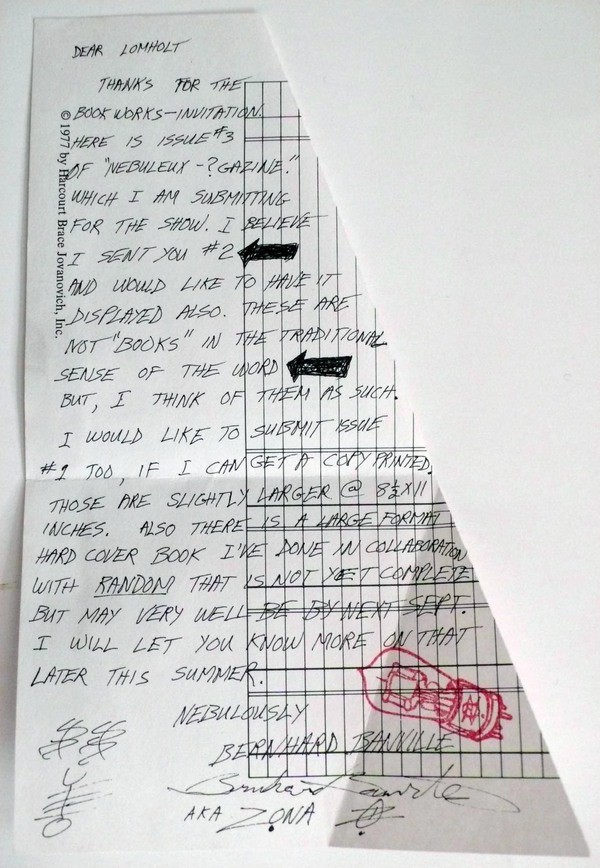 DEAR LOMHOLT
THANKS FOR THE
BOOKWORKS-INVITATION.
HERE IS ISSUE #3
OF "NEBULEUX-?GAZINE."
WHICH I AM SUBMITTING
FOR THE SHOW. I BELIEVE
I SENT YOU #2
AND WOULD LIKE TO HAVE IT
DISPLAYED ALSO. THESE ARE
NOT "BOOKS" IN THE TRADITIONAL
SENSE OF THE WORD
BUT, I THINK OF THEM AS SUCH.
I WOULD LIKE TO SUBMIT ISSUE
#1 TOO, IF I CAN GET A COPY PRINTED,
THOSE ARE SLIGHTLY LARGER @ 8½X11
INCHES. ALSO THERE IS A LARGE FORMAT
HARD COVER BOOK I'VE DONE IN COLLABORATION
WITH RANDOM THAT IS NOT YET COMPLETE
BUT MAY VERY WELL BE BY NEXT SEPT.
I WILL LET YOU KNOW MORE ON THAT
LATER THIS SUMMER.
NEBULOUSLY
BERNHARD BANVILLE
Bernhard Banville
AKA ZONA
© 1977 by Harcourt Brace Jovanovich, Inc.